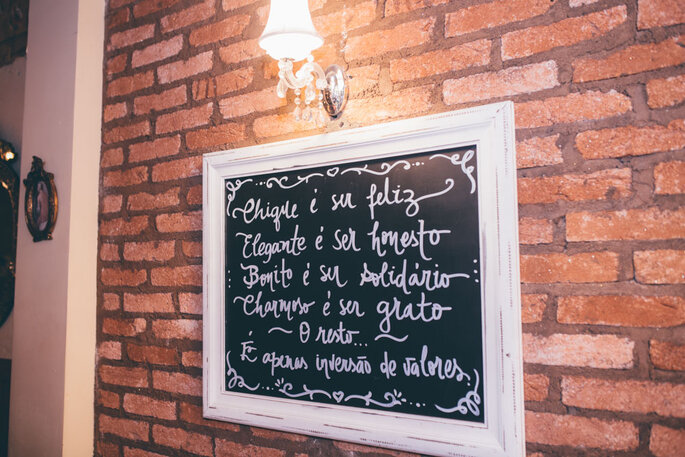 Chique é ser feliz
Elegante é ser honesto
Bonito é ser solidário
Charmoso é ser grato
O resto...
É apenas inversão de valores.